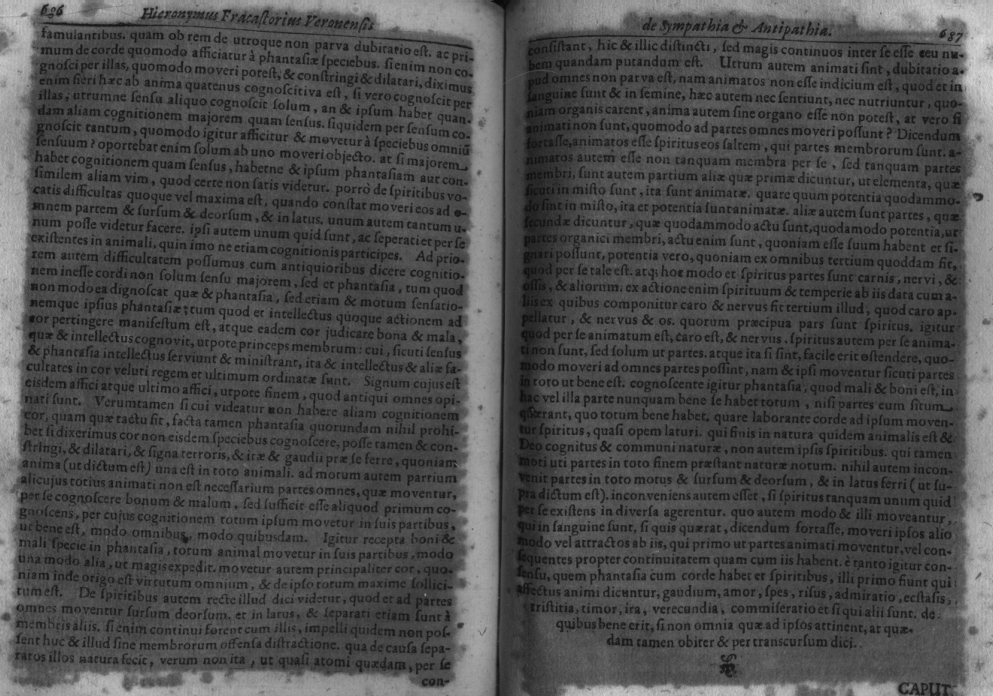 686
Hieronymus Fracastorius Veronensis
famulantibus. quam ob rem de utroque non parva dubitatio est. ac pri-
mum de corde quomodo afficiatur à phantasiæ speciebus. si enim non co-
gnosci per illas, quomodo moveri potest, & constringi & dilatari, diximus
enim fieri hæc ab anima quatenus cognoscitiva est, si vero cognoscit per
illas, utrumne sensu aliquo cognoscit solum, an & ipsum habet quan-
dam aliam cognitionem majorem quam sensus. siquidem per sensum co-
gnoscit tantum, quomodo igitur afficitur & movetur à speciebus omniũ
sensuum? oportebat enim solum ab uno moveri objecto. at si majorem
habet cognitionem quam sensus, habetne & ipsum phantasiam aut con-
similem aliam vim, quod certe non satis videtur. porrò de spiritibus vo-
catis difficultas quoque vel maxima est, quando constat moveri eos ad o-
mnem partem & sursum & deorsum, & in latus. unum autem tantum u-
num posse videtur facere. ipsi autem unum quid sunt, ac seperati et per se
existentes in animali, quin imo ne etiam cognitionis participes. Ad prio-
rem autem difficultatem possumus cum antiquioribus dicere cognitio-
nem inesse cordi non solum sensu majorem, sed et phantasia, tum quod
non modo ea dignoscat quæ & phantasia, sed etiam & motum sensatio-
nemque ipsius phantasiæ; tum quod et intellectus quoque actionem ad
cor pertingere manifestum est, atque eadem cor judicare bona & mala,
quæ & intellectus cognovit, utpote princeps membrum: cui, sicuti sensus
& phantasia intellectus serviunt & ministrant, ita & intellectus & aliæ fa-
cultates in cor veluti regem et ultimum ordinatæ sunt. Signum cujus est
eisdem affici atque ultimo affici, utpote finem, quod antiqui omnes opi-
nati sunt. Verumtamen si cui videatur non habere aliam cognitionem
cor, quam quæ tactu fit, facta tamen phantasia quorundam nihil prohi-
bet si dixerimus cor non eisdem speciebus cognoscere, posse tamen & con-
stringi, & dilatari, & signa terroris, & iræ & gaudii præ se ferre, quoniam
anima (ut dictum est) una est in toto animali. ad morum autem partium
alicujus totius animati non est necessarium partes omnes, quæ moventur,
per se cognoscere bonum & malum, sed sufficit esse aliquod primum co-
gnoscens, per cujus cognitionem totum ipsum movetur in suis partibus,
ut bene est, modo omnibus, modo quibusdam. Igitur recepta boni &
mali specie in phantasia, totum animal movetur in suis partibus, modo
una modo alia, ut magis expedit. movetur autem principaliter cor, quo-
niam inde origo est virtutum omnium, & de ipso totum maxime sollici-
tum est. De spiritibus autem recte illud dici videtur, quod et ad partes
omnes moventur sursum deorsum. et in latus, & separati etiam sunt à
membris aliis. si enim continui forent cum illis, impelli quidem non pos-
sent huc & illud sine membrorum offensa distractione. qua de causa sepa-
ratos illos natura fecit, verum non ita, ut quasi atomi quædam, per se
con-
de Sympathia & Antipathia.
687
consistant, hic & illic distincti, sed magis continuos inter se esse ceu nu-
bem quandam putandum est. Utrum autem animati sint, dubitatio a-
pud omnes non parva est, nam animatos non esse indicium est, quod et in
sanguine sunt & in semine, hæc autem nec sentiunt, nec nutriuntur, quo-
niam organis carent, anima autem sine organo esse non potest, at vero si
animati non sunt, quomodo ad partes omnes moveri possunt? Dicendum
fortasse, animatos esse spiritus eos saltem, qui partes membrorum sunt. a-
nimatos autem esse non tanquam membra per se, sed tanquam partes
membri, sunt autem partium aliæ quæ primæ dicuntur, ut elementa, quæ
sicuti in misto sunt, ita sunt animatæ. quare quum potentia quodammo-
do sint in misto, ita et potentia sunt animatæ. aliæ autem sunt partes, quæ
secundæ dicuntur, quæ quodammodo actu sunt, quodamodo potentia, ut
partes organici membri, actu enim sunt, quoniam esse suum habent et si-
gnari possunt, potentia vero, quoniam ex omnibus tertium quoddam fit,
quod per se tale est. atq; hoc modo et spiritus partes sunt carnis, nervi, &
ossis, & aliorum. ex actione enim spirituum & temperie ab iis data cum a-
liis ex quibus componitur caro & nervus fit tertium illud, quod caro ap-
pellatur, & nervus & os. quorum præcipua pars sunt spiritus, igitur
quod per se animatum est, caro est, & nervus, spiritus autem per se anima-
ti non sunt, sed solum ut partes. atque ita si sint, facile erit ostendere, quo-
modo moveri ad omnes partes possint, nam & ipsi moventur sicuti partes
in toto ut bene est. cognoscente igitur phantasia, quod mali & boni est, in
hac vel illa parte nunquam bene se habet totum, nisi partes eum situm
quærant, quo totum bene habet. quare laborante corde ad ipsum moven-
tur spiritus, quasi opem laturi. qui finis in natura quidem animalis est &
Deo cognitus & communi naturæ, non autem ipsis spiritibus. qui tamen
moti uti partes in toto finem præstant naturæ notum. nihil autem incon-
venit partes in toto motus & sursum & deorsum, & in latus ferri (ut su-
pra dictum est). inconveniens autem esset, si spiritus tanquam unum quid
per se existens in diversa agerentur. quo autem modo & illi moveantur,
qui in sanguine sunt, si quis quærat, dicendum fortasse, moveri ipsos alio
modo vel attractos ab iis, qui primo ut partes animati moventur, vel con-
sequentes propter continuitatem quam cum iis habent. è tanto igitur con-
sensu, quem phantasia cum corde habet et spiritibus, illi primo fiunt qui
affectus animi dicuntur, gaudium, amor, spes, risus, admiratio, ecstasis,
tristitia, timor, ira, verecundia, commiseratio et si qui alii sunt. de
quibus bene erit, si non omnia quæ ad ipsos attinent, at quæ-
dam tamen obiter & per transcursum dici.
CAPUT